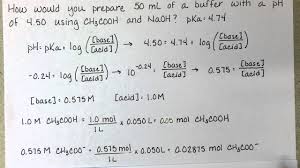 How would you prepare 50 mL of a buffer with a pH
of 4.50 using CH₃COOH and NaOH? pKa = 4.74
pH = pKa + log ([base]/[acid]) → 4.50 = 4.74 + log ([base]/[acid])
-0.24 = log ([base]/[acid]) → 10^-0.24 = [base]/[acid] → 0.575 = [base]/[acid]
[base] = 0.575 M [acid] = 1.0 M
1.0 M CH₃COOH = 1.0 mol/1 L × 0.050 L = mol CH₃COOH
0.515 M CH₃COO⁻ = 0.515 mol/1 L × 0.050 L = 0.02875 mol CH₃COO⁻